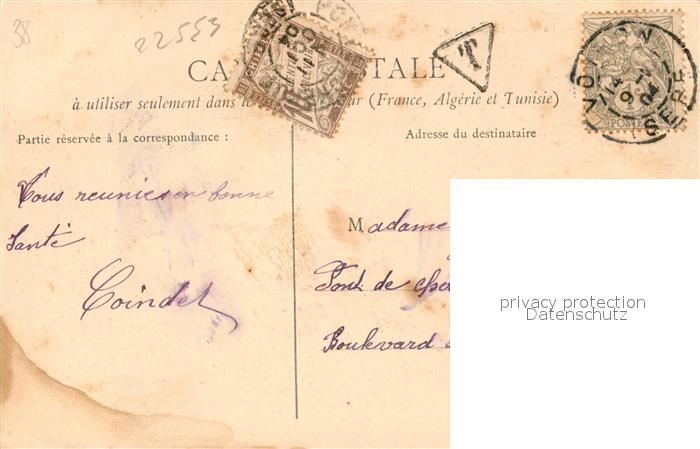 38
22553
CA TALE
à utiliser seulement dans le ur (France, Algérie et Tunisie)
T
VOIRON
ISERE
POSTE
Partie réservée à la correspondance :
Adresse du destinataire
Tous reunies en bonne
Santé
Coindet
Madame
Pont de
Boulevard
privacy protection
Datenschutz